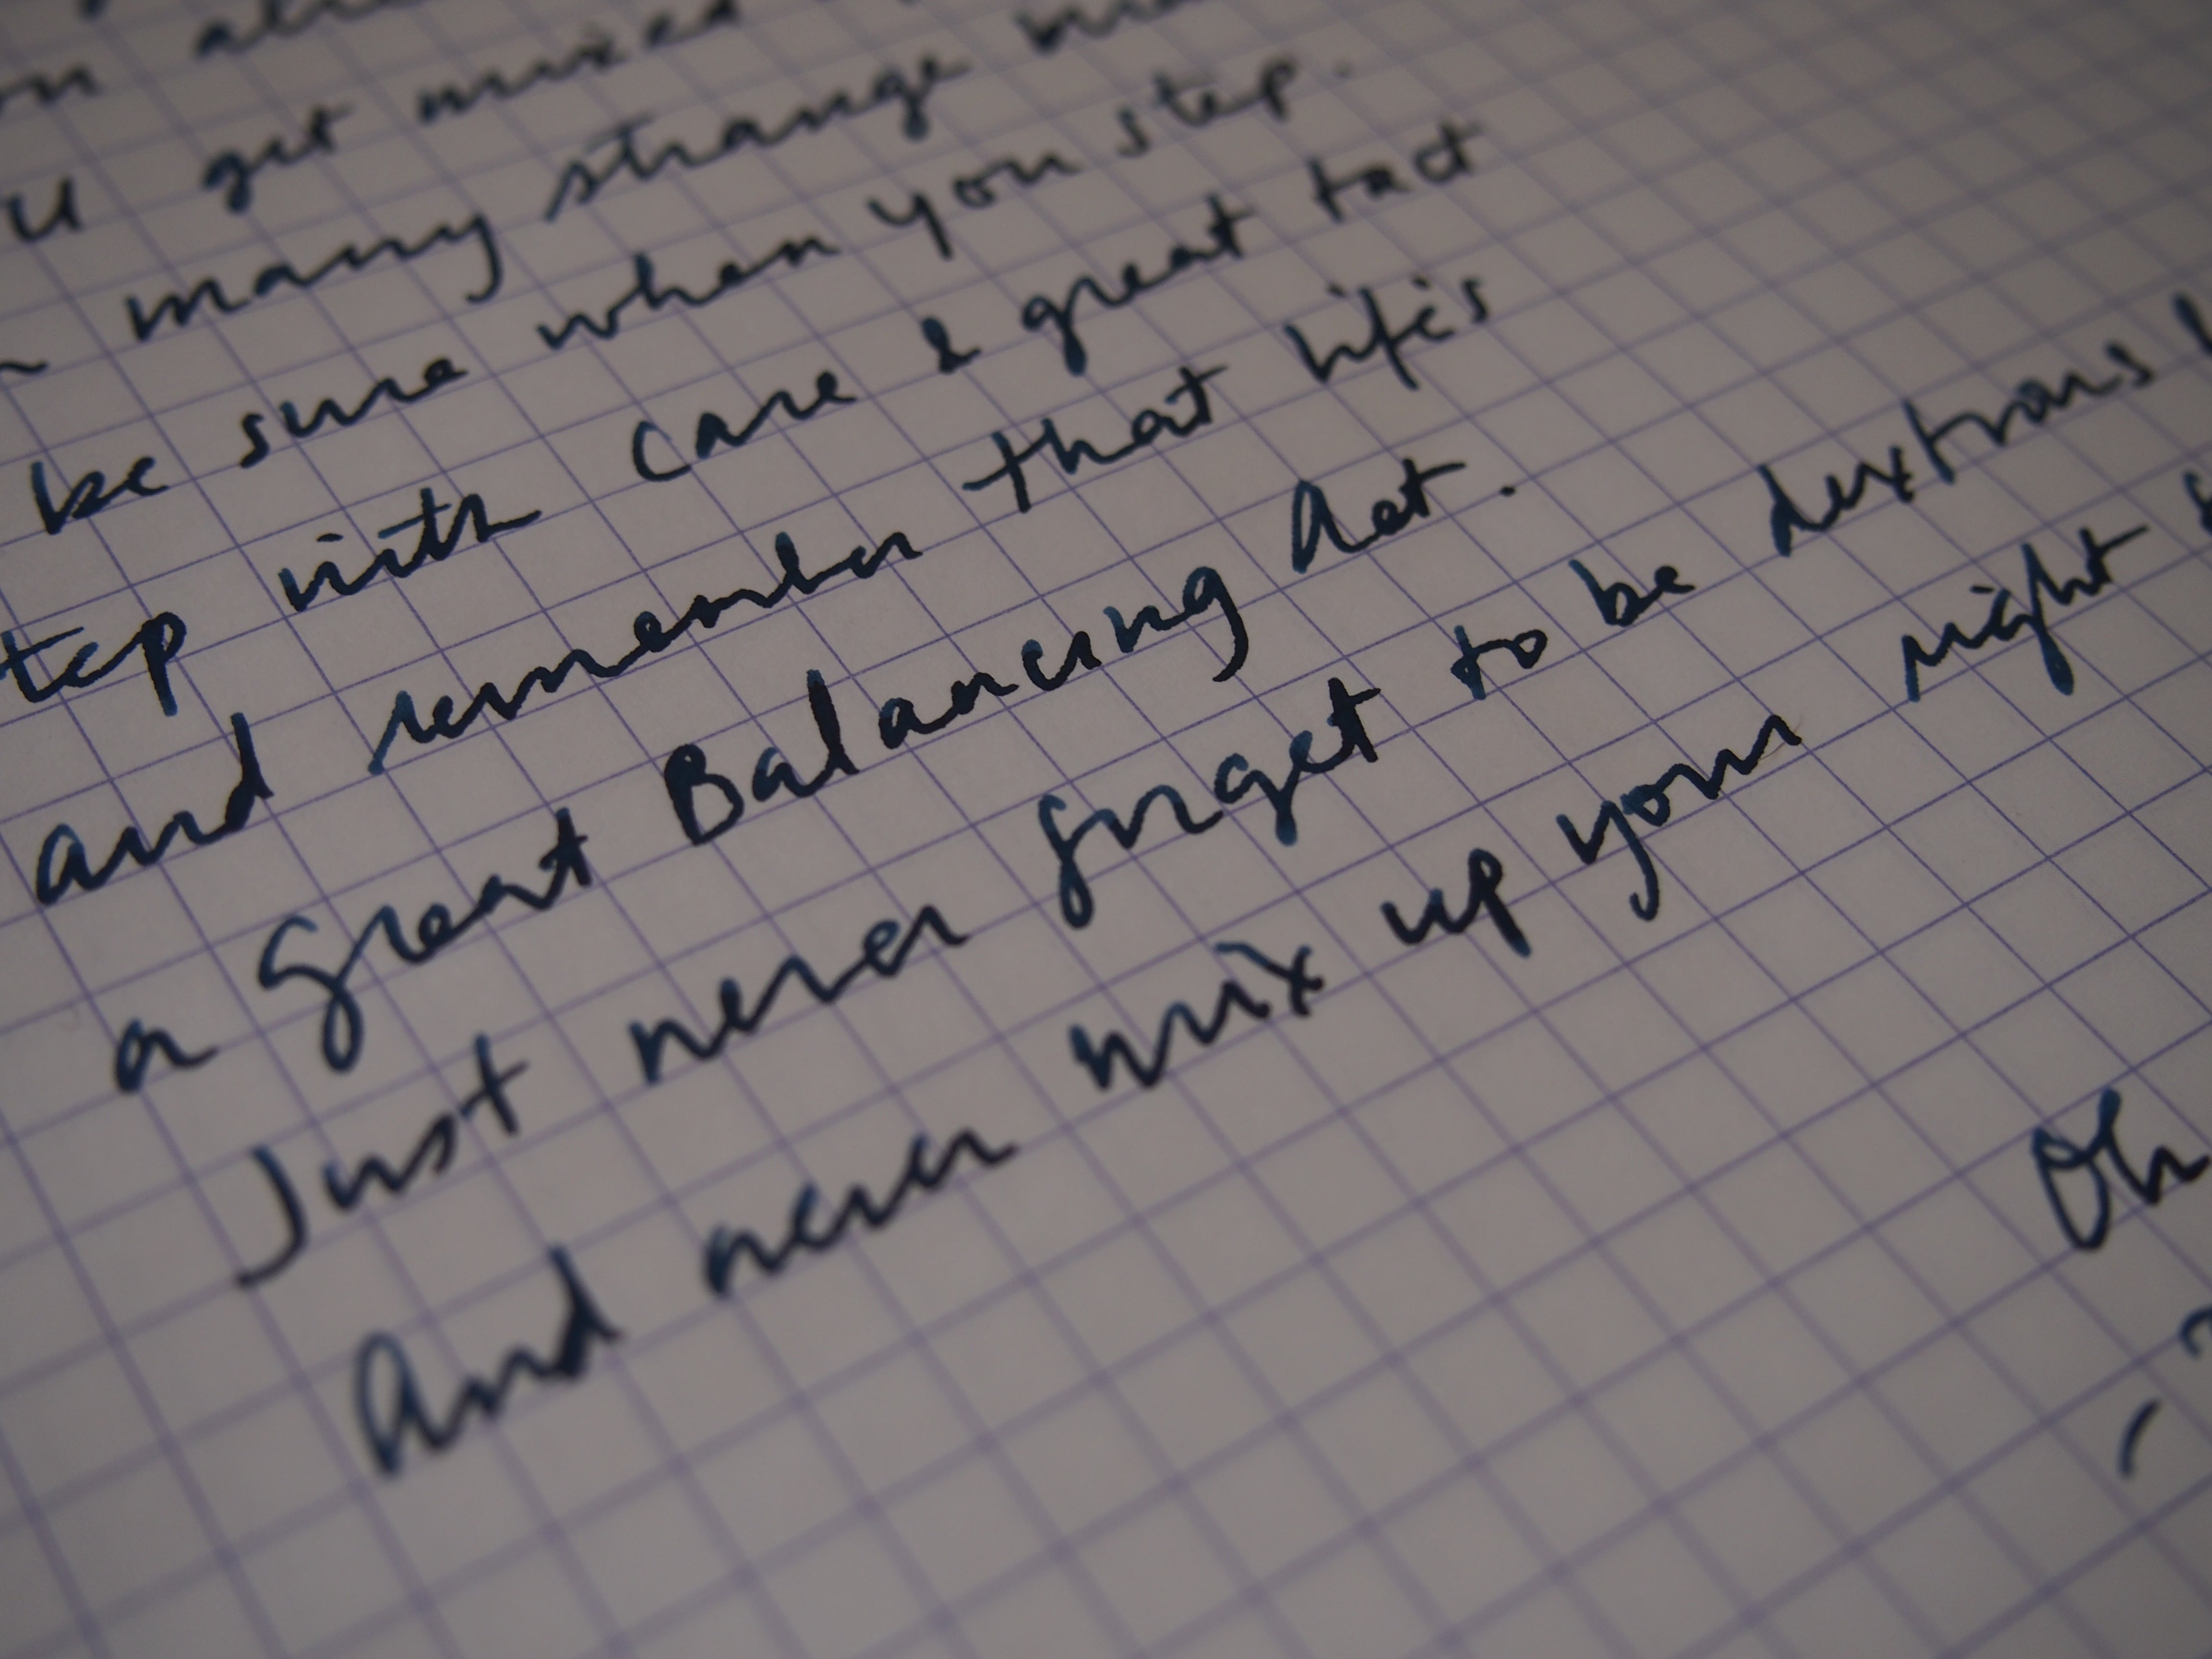 get mixed
many strange
be sure when you step.
with care & great tact
and remember that life's
a Great Balancing Act.
Just never forget to be dextrous
And never mix up your right
Oh